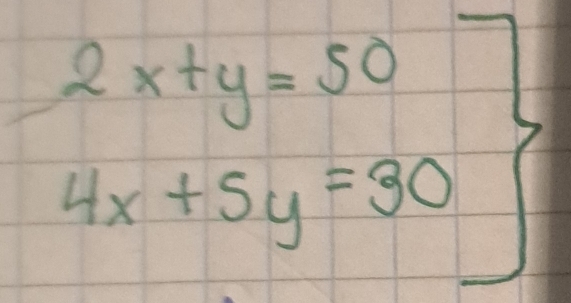 2x+y=50
4x+5y=30